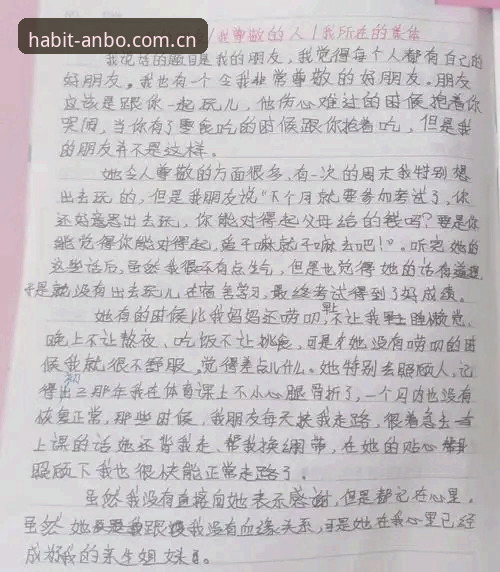 habit-anbo.com.cn
我尊敬的人/我所在的集体
我说话的题目是我的朋友,我觉得每个人都有自己的
好朋友。我也有一个令我非常尊敬的好朋友。朋友
应该是跟你一起玩儿,他伤心难过的时候抱着你
哭闹,当你有了零食吃的时候跟你抢着吃,但是我
的朋友并不是这样。
她令人尊敬的方面很多,有一次的周末我特别想
出去玩的,但是我朋友说“下个月就要参加考试了,你
还好意思出去玩,你能对得起父母给的钱吗?要是你
能觉得你能对得起,
这些话后,虽然我很不有点生气,但是也觉得她的话有道理,
于是就没有出去玩儿在宿舍学习,最终考试得到了好成绩。
她有的时候比我妈妈还唠叨,不让我早上睡懒觉,
晚上不让熬夜、吃饭不让挑食,可是她没有唠叨的时
候我就很不舒服,觉得差点儿什么。她特别会照顾人,记
得初三那年我在体育课上不小心腿骨折了,一个月内也没有
恢复正常,那些时候,我朋友每天扶我走路,很着急去
上课的话她还背我走、帮我换绷带,在她的贴心
照顾下我也很快能正常走路了。
虽然我没有直接向她表示感谢,但是都记在心里,
虽然她跟我没有血缘关系,可是她在我心里已经
成为我的亲生姐妹。